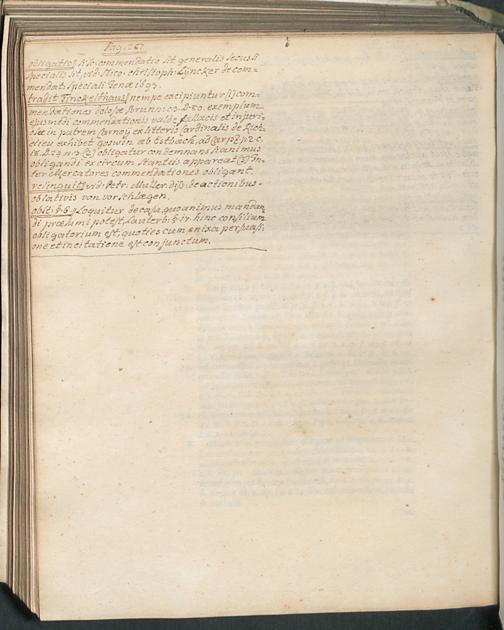 Pag. 267
obligatio] Si sc: commendatio sit generalis secus si
specialis sit, vid: Nico: Christoph: Lÿncker de com=
mendat: speciali Jenæ 1697.
tradit Finckelthaus] nempe excipiuntur (1) com=
mendationes dolosæ Brunn: co: exemplum
ejusmodi commendationis valde fallacis et injuri
osæ in patrem Carnoy ex litteris Cardinalis de Rich
elieu exhibet Goswin. ab Esbach, ad Carpz. p. 2. c.
18. D. 23. n. 13 (2) obligatur condemnans si animus
obligandi ex circumstantiis appareat (3) In=
ter Mercatores commendationes obligant.
relinquit] vid: Petr: Muller. diß: de actionibus
oblativis von vorschlægen.
oblt: §. 6.] Loquitur de casu, quo animus mandan
di præsumi potest, Lauterb: §. 17. hinc consilium
obligatorium est, quoties cum enixa persuasi,
one et incitatione est conjunctum.